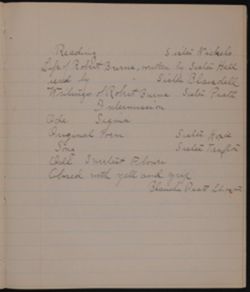 Reading Sister Nichols
Life of Robert Burns, written by Sister Hall
read by Sister Blaisdell
Writings of Robert Burns Sister Pratt
Intermission
Ode. Sigma
Original Poem Sister
Song Sister Taylor
Closed with yell and grip